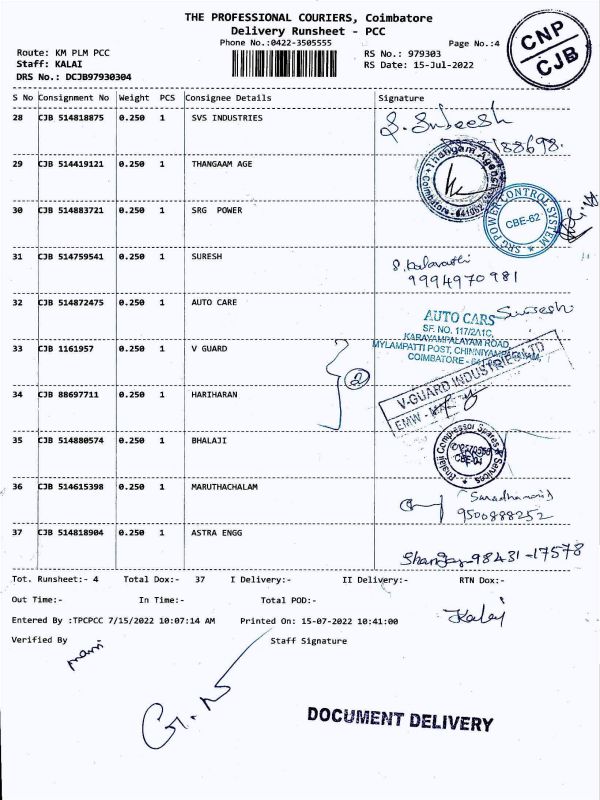 THE PROFESSIONAL COURIERS, Coimbatore
Delivery Runsheet - PCC
Phone No.:0422-3505555
Page No.:4
CNP
CJB
Route: KM PLM PCC
Staff: KALAI
DRS No.: DCJB97930304
RS No.: 979303
RS Date: 15-Jul-2022
S No Consignment No Weight PCS Consignee Details Signature
28 CJB 514818875 0.250 1 SVS INDUSTRIES S. Suresh
29 CJB 514419121 0.250 1 THANGAAM AGE
Coimbatore - 641062
30 CJB 514883721 0.250 1 SRG POWER
SRG POWER CONTROL SYSTEM
CBE-62
31 CJB 514759541 0.250 1 SURESH
9994970981
32 CJB 514872475 0.250 1 AUTO CARE Suresh
AUTO CARS
SF. NO. 117/2A1C,
KARAYAMPALAYAM ROAD,
MYLAMPATTI POST, CHINNIYAMPALAYAM,
COIMBATORE -
33 CJB 1161957 0.250 1 V GUARD
2
V-GUARD INDUSTRIES LTD
EMW -
34 CJB 88697711 0.250 1 HARIHARAN
35 CJB 514880574 0.250 1 BHALAJI
Compressor Spares & Services
36 CJB 514615398 0.250 1 MARUTHACHALAM
9500888252
37 CJB 514818904 0.250 1 ASTRA ENGG
98431-17578
Tot. Runsheet:- 4 Total Dox:- 37 I Delivery:- II Delivery:- RTN Dox:-
Out Time:- In Time:- Total POD:-
Entered By :TPCPCC 7/15/2022 10:07:14 AM Printed On: 15-07-2022 10:41:00
Kalai
Verified By Staff Signature
mani
G.N
DOCUMENT DELIVERY